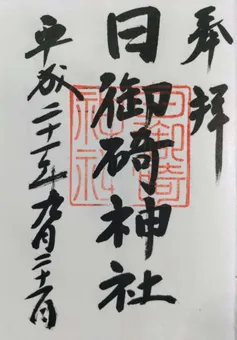 奉拝
日御碕神社
日御碕
神社
平成二十一年九月二十一日